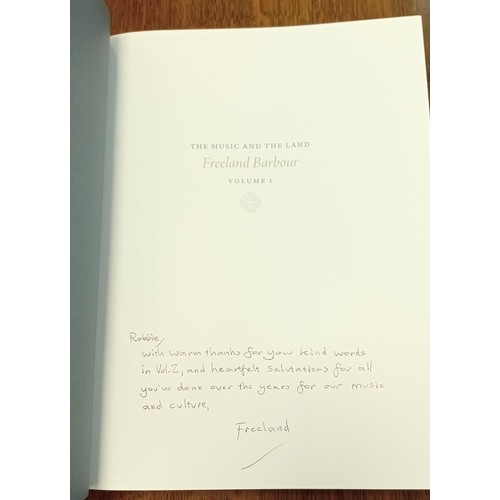 THE MUSIC AND THE LAND
Freeland Barbour
VOLUME 1
Robbie,
With warm thanks for your kind words
in Vol.2, and heartfelt salutations for all
you've done over the years for our music
and culture,
Freeland